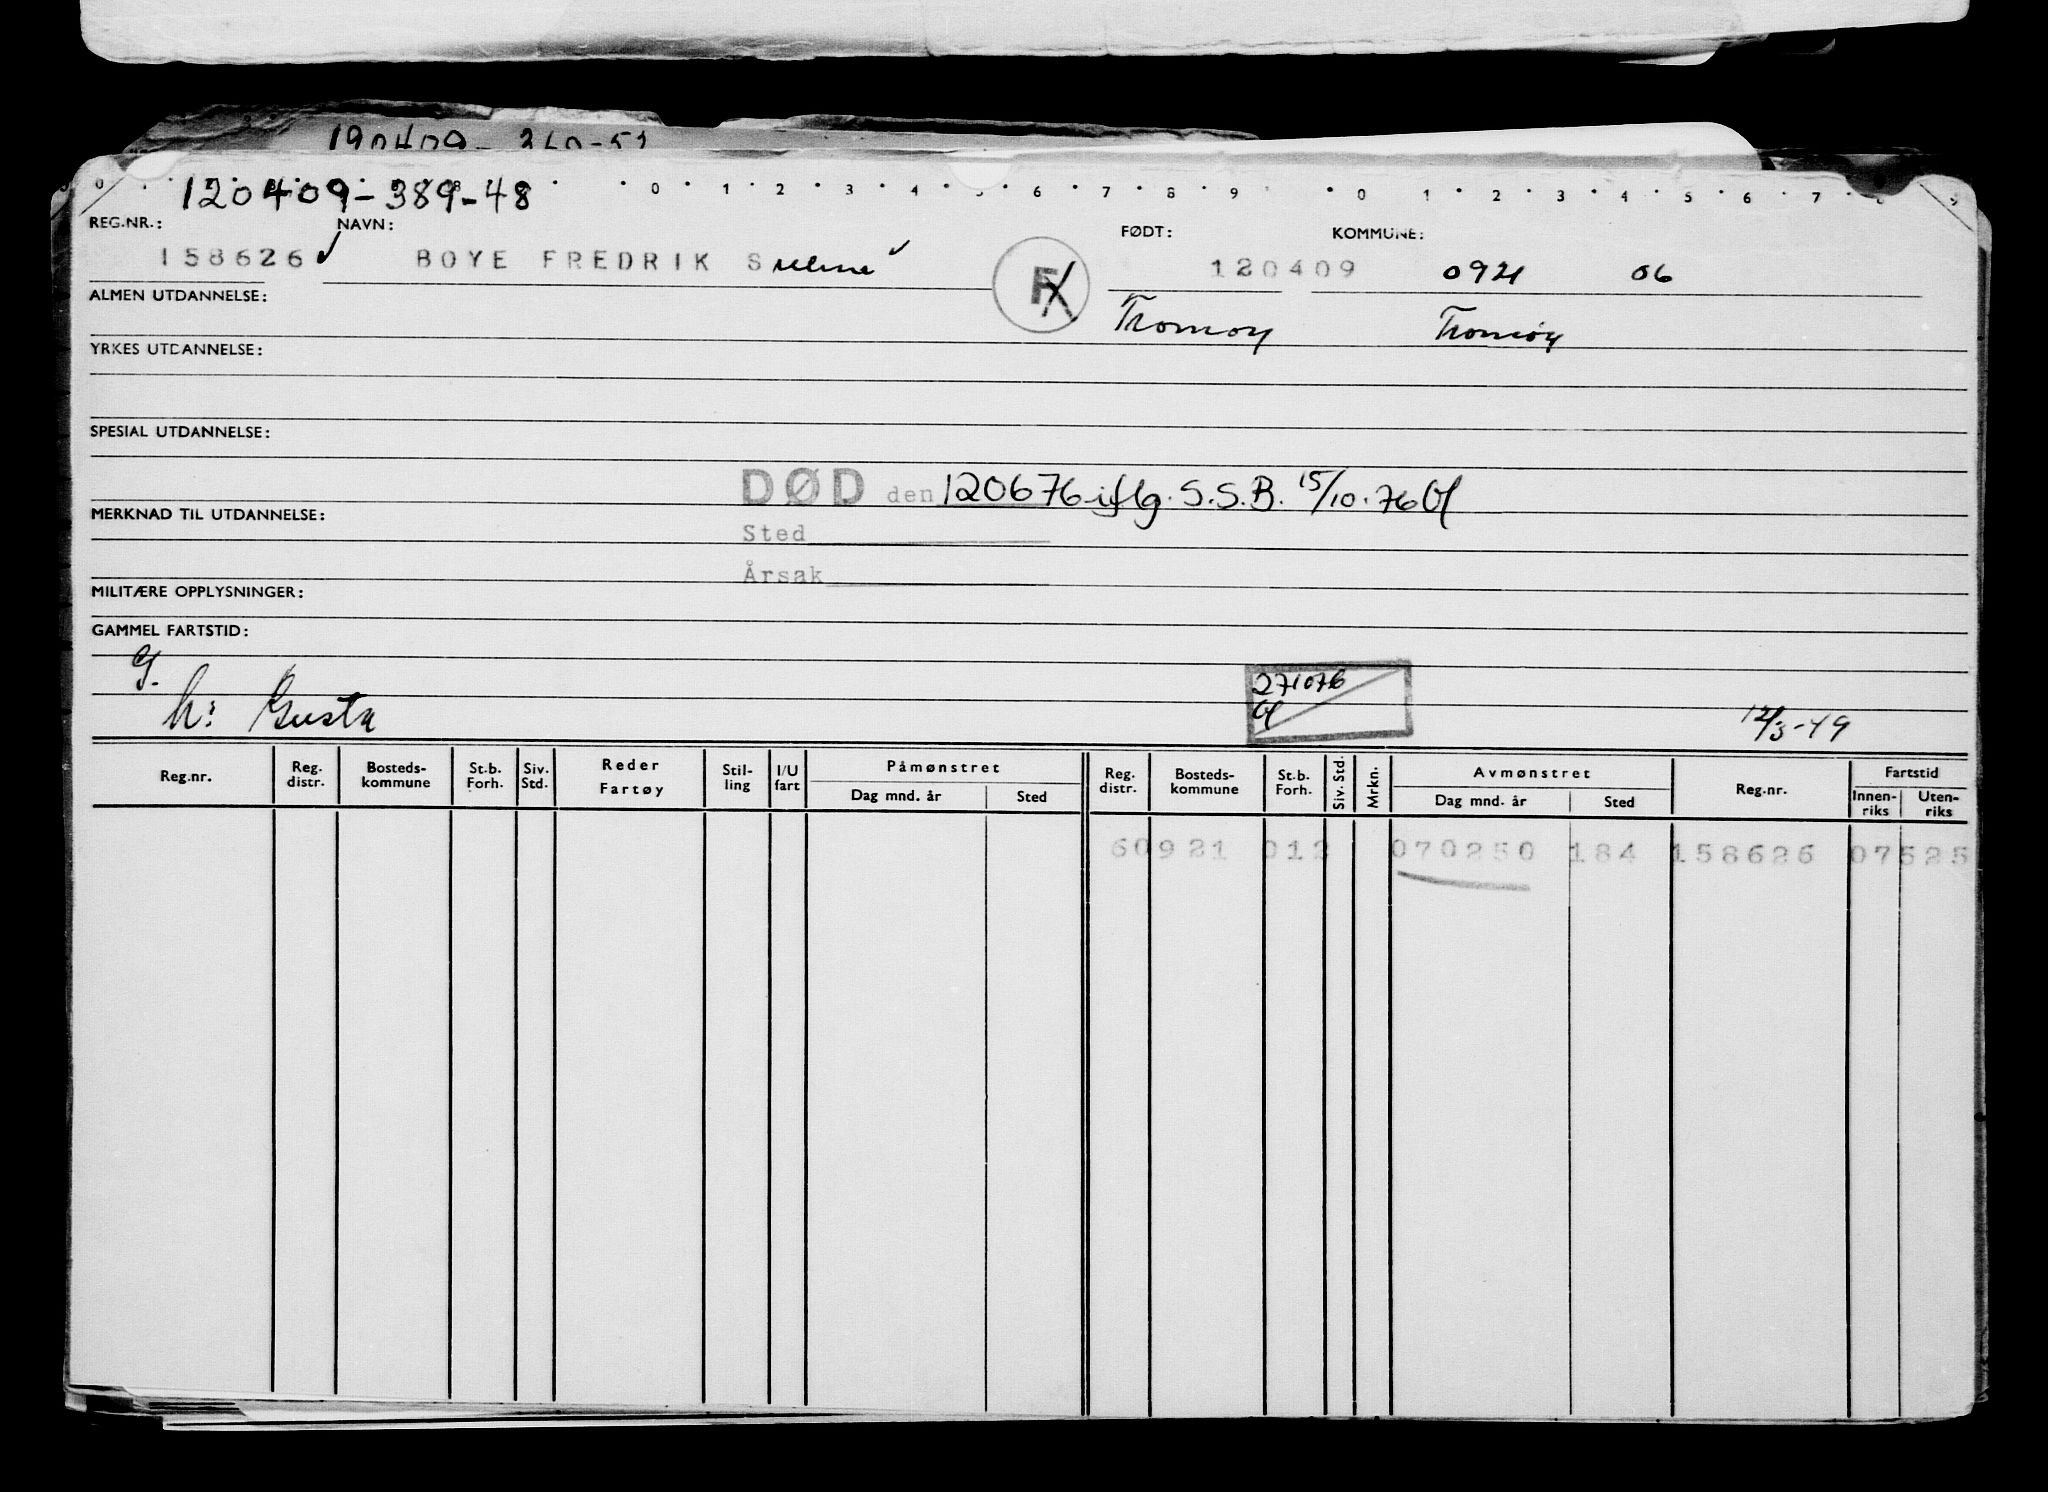 190409-
120409-389-48
0 1 2 3 4 5 6 7 8 9 0 1 2 3 4 5 6 7 8 9
REG.NR.: NAVN: FØDT: KOMMUNE:
158626 BOYE FREDRIK S F 120409 0921 06
ALMEN UTDANNELSE: Tromøy Tromøy
YRKES UTDANNELSE:
SPESIAL UTDANNELSE:
DØD den 120676 iflg. S.S.B. 15/10.76
MERKNAD TIL UTDANNELSE:
Sted
Årsak
MILITÆRE OPPLYSNINGER:
GAMMEL FARTSTID:
G.
h: Gusta 271076 12/3-49
Reg.nr. Reg. distr. Bosteds-kommune St.b. Forh. Siv. Std. Reder Fartøy Stil-ling I/U fart Påmønstret Dag mnd. år Sted Reg. distr. Bosteds-kommune St.b. Forh. Siv. Std. Mrkn. Avmønstret Dag mnd. år Sted Reg.nr. Fartstid Innen-riks Uten-riks
60921 012 070250 184 158626 07525